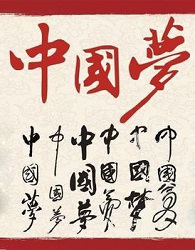 中國夢
中國夢
中國夢
中國夢
中國夢
中國夢
中國夢